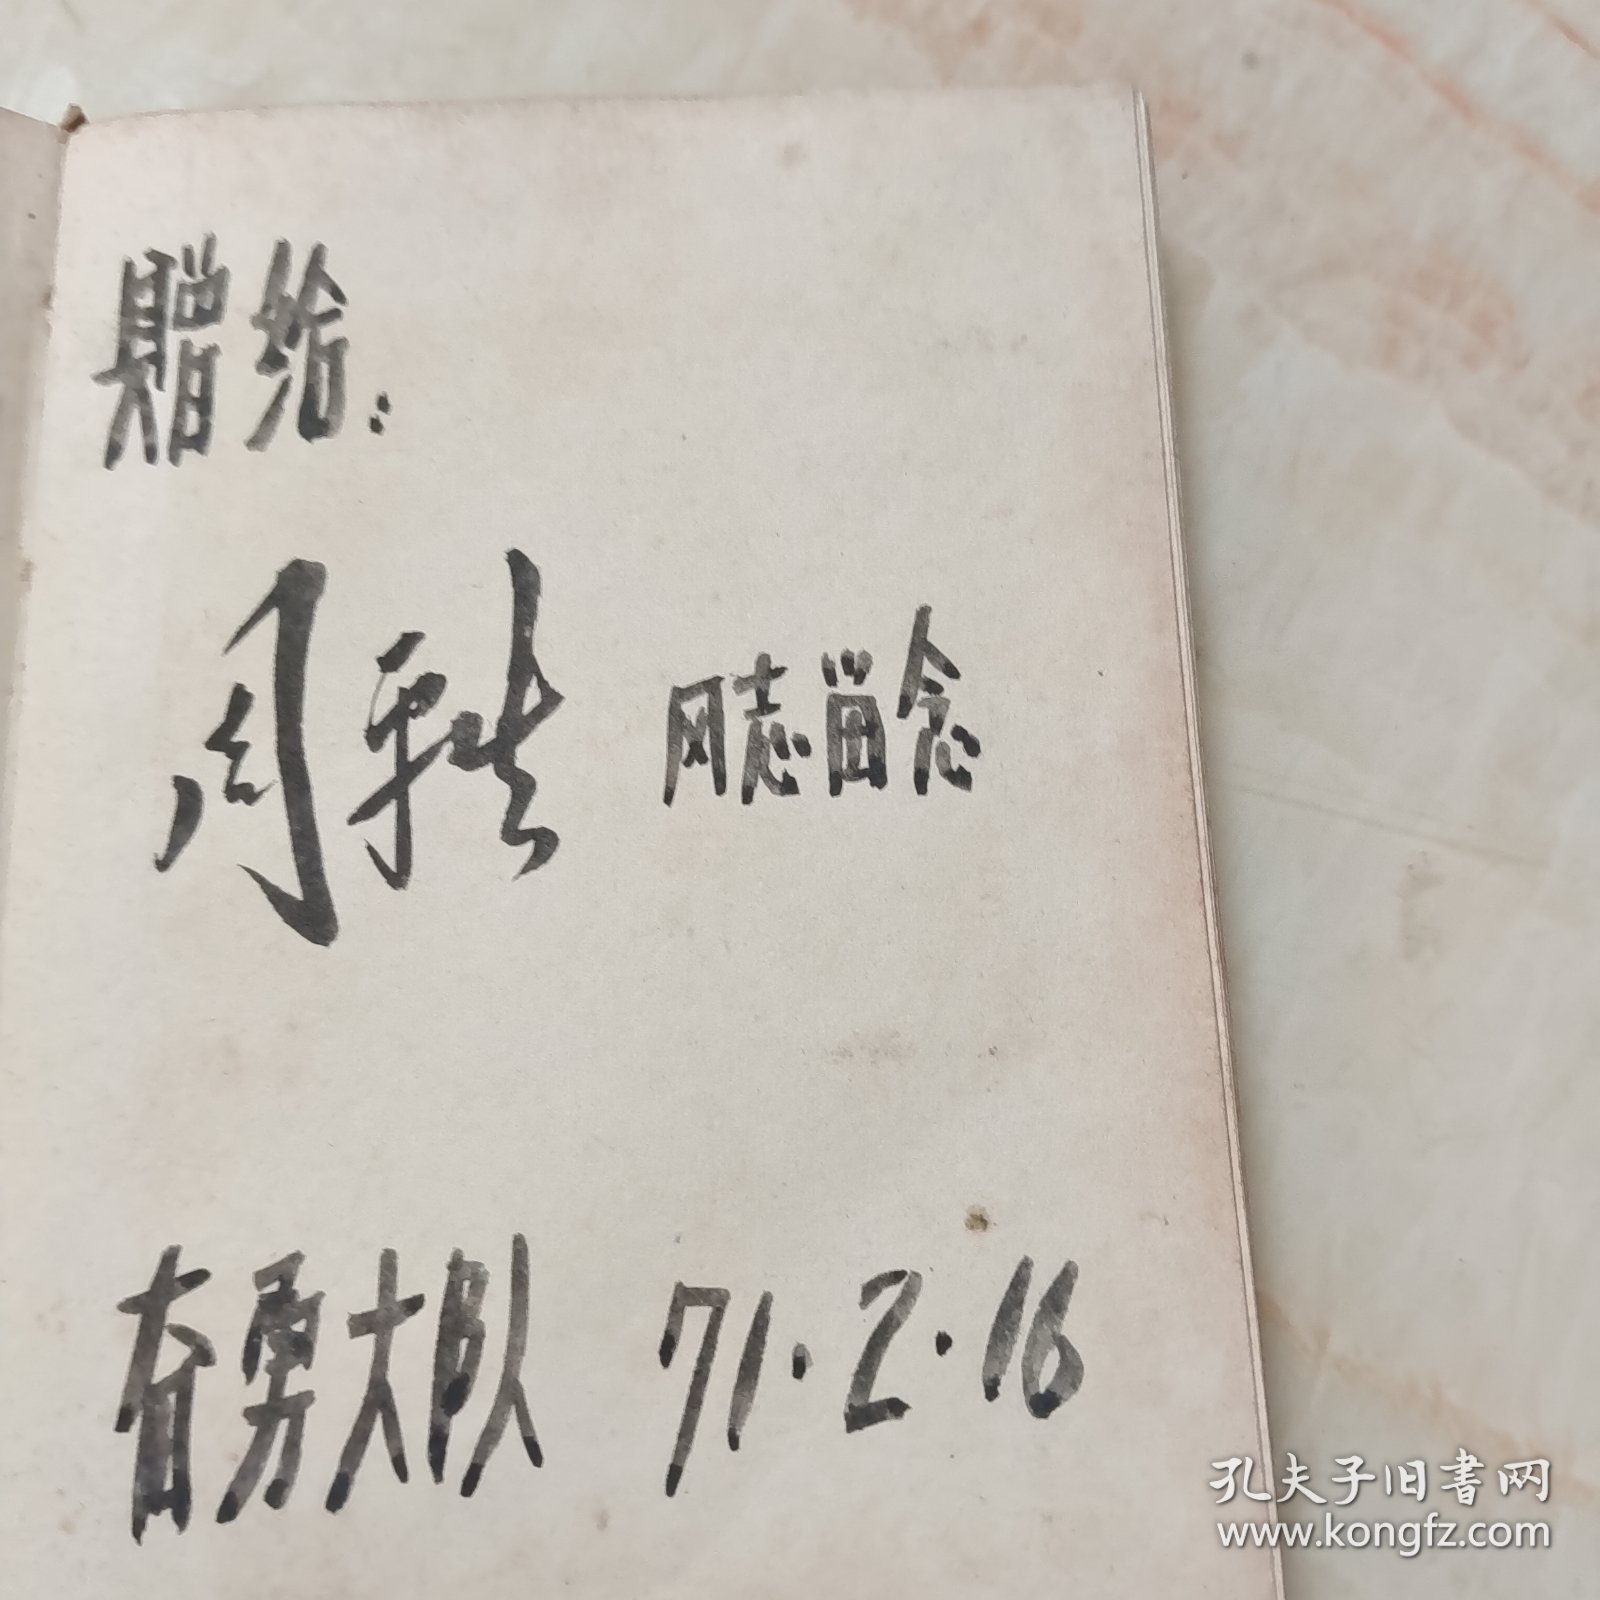 赠给：
周 同志留念
奋勇大队 71.2.16
孔夫子旧书网
www.kongfz.com